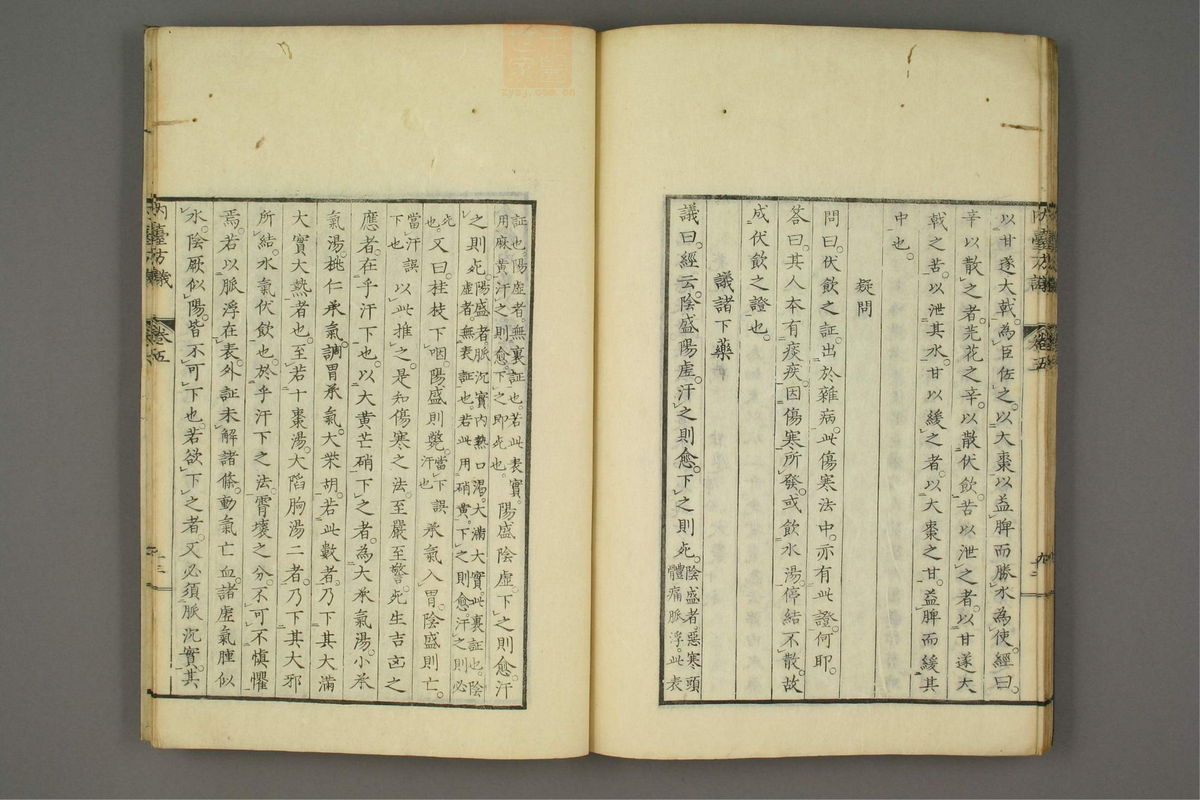 以甘遂大戟。為臣佐之。以大棗以益脾而勝水為使。經曰。
辛以散之者。芫花之辛。以散伏飲。苦以泄之者。以甘遂大
戟之苦。以泄其水。甘以緩之者。以大棗之甘。益脾而緩其
中也。
疑問
問曰。伏飲之証。出於雜病。此傷寒法中。亦有此證。何耶。
答曰。其人本有痰疾。因傷寒所發。或飲水湯。停結不散。故
成伏飲之證也。
議諸下藥
議曰。經云。陰盛陽虛。汗之則愈。下之則死。陰盛者。惡寒頭
體痛脈浮。此表
証也。陽虛者。無裏証也。若此表實。
用麻黃汗之則愈。下之即死也。陽盛陰虛。下之則愈。汗
之則死。陽盛者。脈沉實內熱口渴。大滿大實。此裏証也。陰
虛者。無表証也。若此用硝黃。下之則愈。汗之則必
死
也。又曰。桂枝下咽。陽盛則斃。當下誤
汗也承氣入胃。陰盛則亡。
當汗誤
下也以此推之。是知傷寒之法。至嚴至警。死生吉凶之
應者。在乎汗下也。以大黃芒硝下之者。為大承氣湯。小承
氣湯。桃仁承氣。調胃承氣。大柴胡。若此數者。乃下其大滿
大實大熱者也。至若十棗湯。大陷胸湯二者。乃下其大邪
所結。水氣伏飲也。於乎汗下之法。霄壤之分。不可不慎懼
焉。若以脈浮在表。外証未解諸條。動氣亡血。諸虛氣腫似
水。陰厥似陽。皆不可下也。若欲下之者。又必須脈沉實。其
內臺方議
卷五
內臺方議
卷五